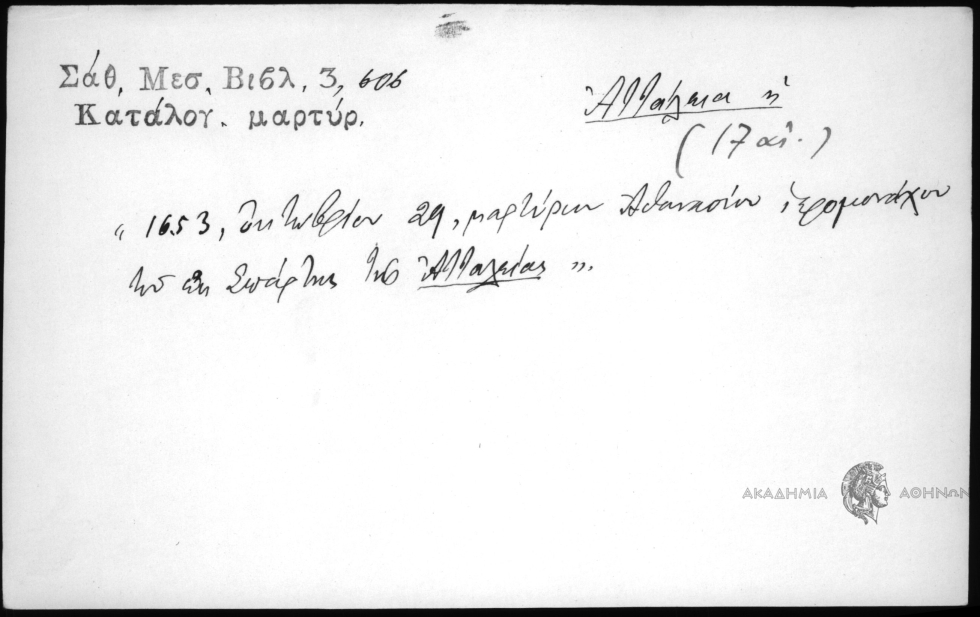 Σάθ. Μεσ. Βιβλ. 3, 606
Κατάλογ. μαρτύρ.
Ἀττάλεια ἡ
(17 αἰ.)
" 1653, Ὀκτωβρίου 29, μαρτύριον Ἀθανασίου ἱερομονάχου
τοῦ ἐκ Σπάρτης τῆς Ἀτταλείας ".
ΑΚΑΔΗΜΙΑ ΑΘΗΝΩΝ